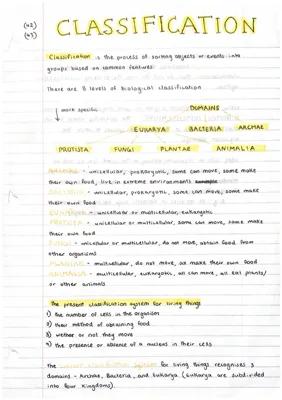 (42)
(43)
CLASSIFICATION
Classification is the process of sorting objects or events into
groups based on common features
There are 8 levels of biological classification
more specific
DOMAINS
EUKARYA BACTERIA ARCHAE
PROTISTA FUNGI PLANTAE ANIMALIA
ARCHAE - unicellular, prokaryotic, some can move, some make
their own food, live in extreme environments
BACTERIA - unicellular, prokaryotic, some can move, some make
their own food
EUKARYA - unicellular or multicellular, eukaryotic
PROTISTA - unicellular or multicellular, some can move, some make
their own food
FUNGI - unicellular or multicellular, do not move, obtain food from
other organisms
PLANTAE - multicellular, do not move, all make their own food
ANIMALIA - multicellular, eukaryotic, all can move, all eat plants/
or other animals
The present classification system for living things
1) the number of cells in the organism
2) their method of obtaining food
3) whether or not they move
4) the presence or absence of a nucleus in their cells
The current classification system for living things recognises 3
domains - Archae, Bacteria, and Eukarya (Eukarya are subdivided
into four kingdoms).